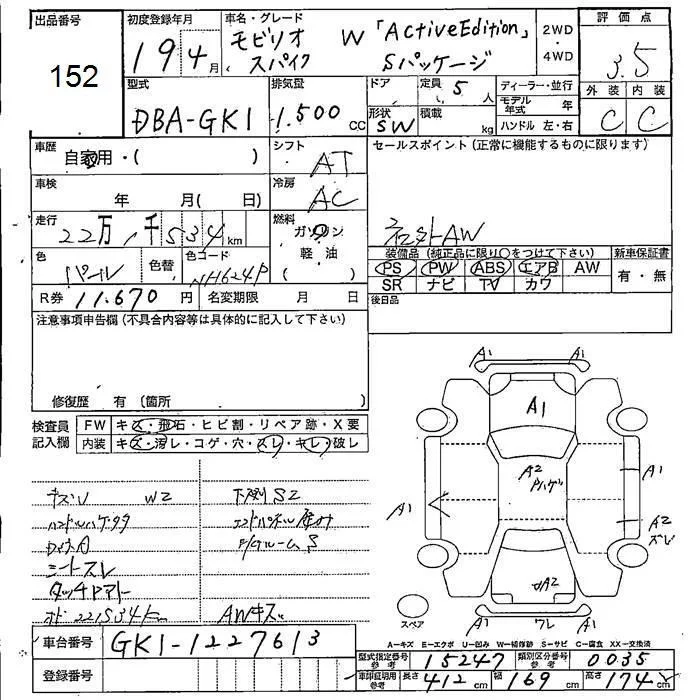 出品番号
152
初度登録年月
19年4月
車名・グレード
モビリオ スパイク W 「ActiveEdition」 Sパッケージ
2WD・4WD
評価点
3.5
外装 内装
C C
型式
DBA-GK1
排気量
1.500cc
ドア
形状 SW
定員 5人
積載 kg
ディーラー・並行
モデル年式 年
ハンドル 左・右
車歴
自家用・( )
シフト
AT
セールスポイント(正常に機能するものに限ります)
社外AW
車検
年 月( 日)
冷房
AC
走行
22万1千534km
燃料
ガソリン
軽油
( )
色
パール
色替
色コード
NH624P
装備品(純正品に限り○をつけて下さい)
PS PW ABS エアB AW
SR ナビ TV カワ
新車保証書
有・無
R券 11.670円
名変期限 月 日
後日品
注意事項申告欄(不具合内容等は具体的に記入して下さい)
修復歴 有(箇所
検査員記入欄
FW キズ・飛石・ヒビ割・リペア跡・X要
内装 キズ・汚レ・コゲ・穴・スレ・キレ・破レ
キズU W2
ハンドルハゲ
シートスレ
タッチアリ
下廻り S2
フロアルーム S
AWキズ
A1 A1
A1
A2
A1
A1
A2
A2
ワレ
スペア
A-キズ E-エクボ U-凹み W-補修跡 S-サビ C-腐食 XX-交換済
車台番号
GK1-1227613
登録番号
型式指定番号 参考 15247
類別区分番号 参考 0035
車庫証明用 参考 長さ 412cm 幅 169cm 高さ 174cm